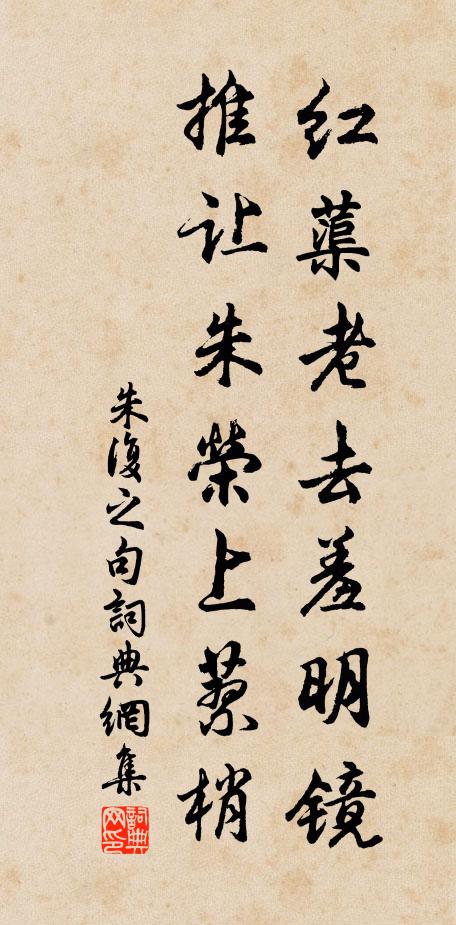 红蕖老去羞明镜
推让朱榮上蓼梢
朱復之句詞典網集
詞典网印